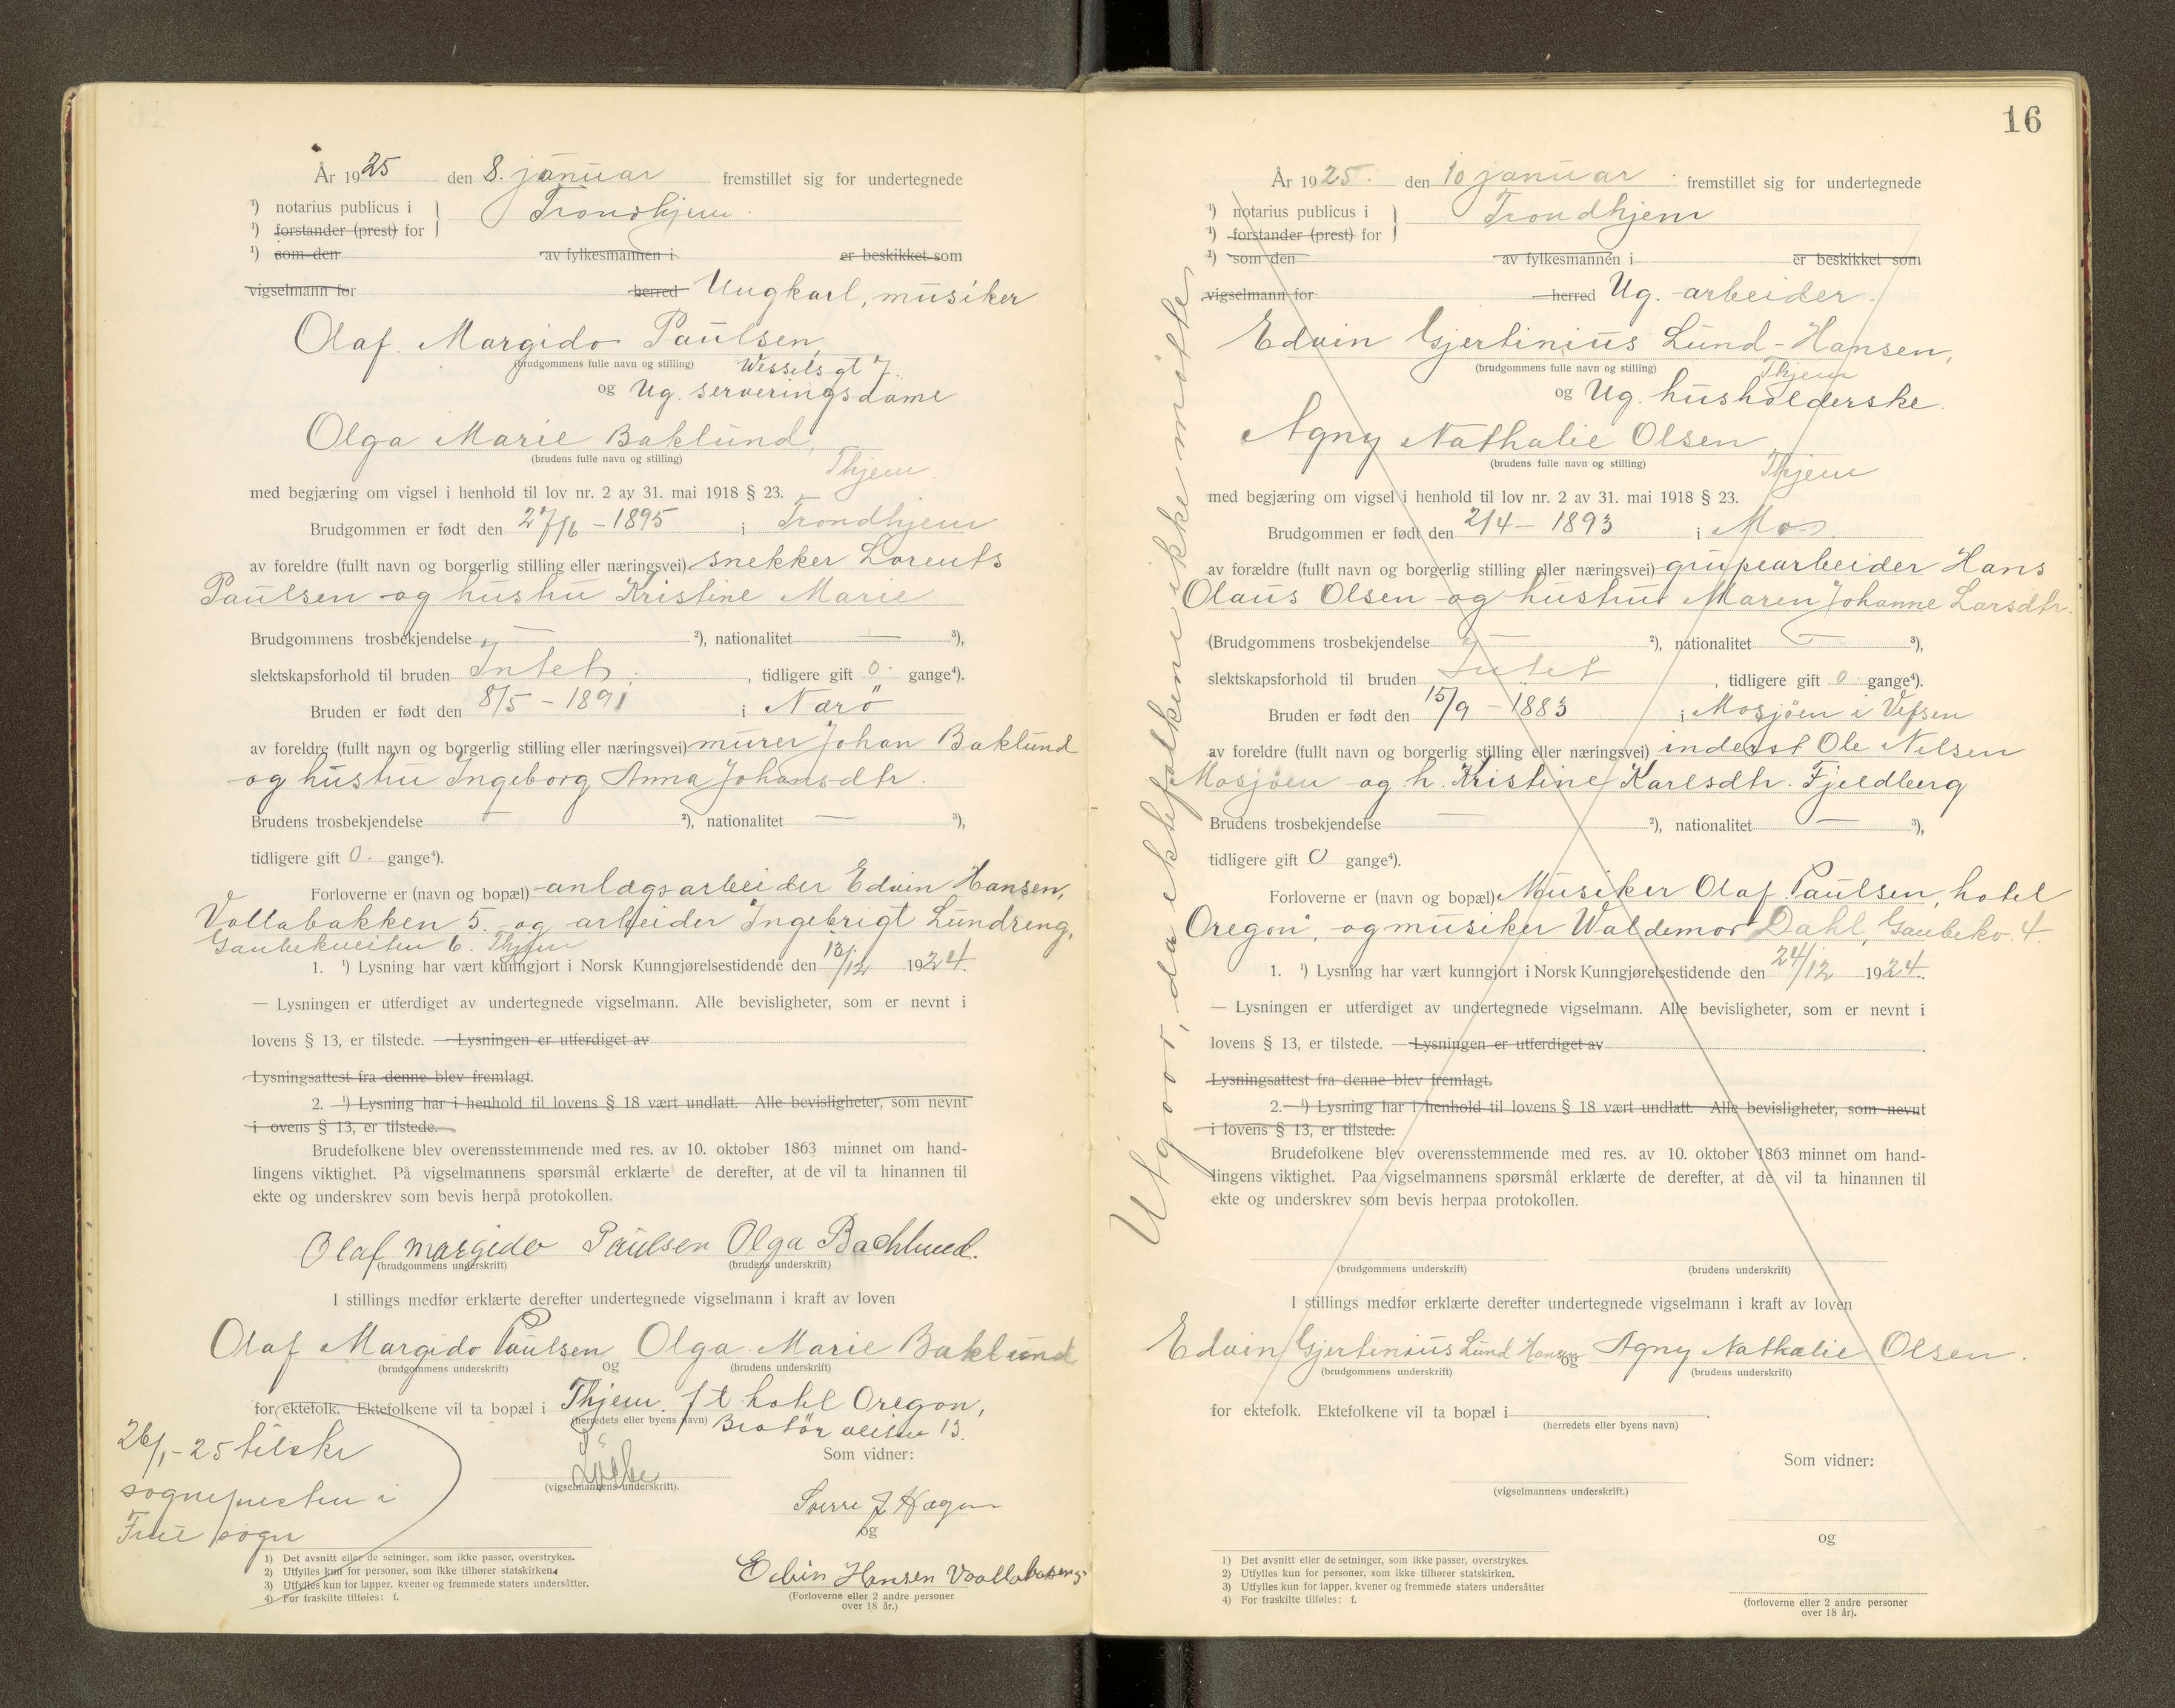 År 1925 den 8. januar fremstillet sig for undertegnede
¹) notarius publicus i } Trondhjem.
¹) forstander (prest) for
¹) som den av fylkesmannen i er beskikket som
vigselmann for herred Ungkarl, musiker
Olaf Margido Paulsen,
(brudgommens fulle navn og stilling) Wessels gt 7.
og Ug. serveringsdame
Olga Marie Baklund,
(brudens fulle navn og stilling) Thjem
med begjæring om vigsel i henhold til lov nr. 2 av 31. mai 1918 § 23.
Brudgommen er født den 27/6 - 1895 i Trondhjem
av foreldre (fullt navn og borgerlig stilling eller næringsvei) snekker Lorents
Paulsen og hustru Kristine Marie
Brudgommens trosbekjendelse — ²), nationalitet — ³),
slektskapsforhold til bruden Intet, tidligere gift 0. gange⁴).
Bruden er født den 8/5 - 1891 i Nærö
av foreldre (fullt navn og borgerlig stilling eller næringsvei) murer Johan Baklund
og hustru Ingeborg Anna Johansdtr.
Brudens trosbekjendelse — ²), nationalitet — ³),
tidligere gift 0. gange⁴).
Forloverne er (navn og bopæl) anlægsarbeider Edvin Hansen,
Vollabakken 5. og arbeider Ingebrigt Lundreng,
Gaubekveiten 6. Thjem
1. ¹) Lysning har vært kunngjort i Norsk Kunngjørelsestidende den 13/12 1924.
— Lysningen er utferdiget av undertegnede vigselmann. Alle bevisligheter, som er nevnt i
lovens § 13, er tilstede. — Lysningen er utferdiget av
Lysningsattest fra denne blev fremlagt.
2. ¹) Lysning har i henhold til lovens § 18 vært undlatt. Alle bevisligheter, som nevnt
i ovens § 13, er tilstede.
Brudefolkene blev overensstemmende med res. av 10. oktober 1863 minnet om hand-
lingens viktighet. På vigselmannens spørsmål erklærte de derefter, at de vil ta hinannen til
ekte og underskrev som bevis herpå protokollen.
Olaf Margido Paulsen Olga Bachlund.
(brudgommens underskrift) (brudens underskrift)
I stillings medfør erklærte derefter undertegnede vigselmann i kraft av loven
Olaf Margido Paulsen og Olga Marie Baklund
(brudgommens underskrift) (brudens underskrift)
for ektefolk. Ektefolkene vil ta bopæl i Thjem. ft hotel Oregon,
(herredets eller byens navn) Bratör veiten 13.
26/1-25 tilskr
sognepresten i
Frue sogn
(vigselmannens underskrift).
Som vidner:
Sverre J Hagen
og
Edvin Hansen
(Forloverne eller 2 andre personer
over 18 år.)
1) Det avsnitt eller de setninger, som ikke passer, overstrykes.
2) Utfylles kun for personer, som ikke tilhører statskirken.
3) Utfylles kun for lapper, kvener og fremmede staters undersåtter.
4) For fraskilte tilføies: f.
16
År 1925. den 10 januar fremstillet sig for undertegnede
¹) notarius publicus i } Trondhjem
¹) forstander (prest) for
¹) som den av fylkesmannen i er beskikket som
vigselmann for herred Ug. arbeider.
Edvin Gjertinius Lund-Hansen,
(brudgommens fulle navn og stilling) Thjem
og Ug. husholderske.
Agny Nathalie Olsen
(brudens fulle navn og stilling) Thjem
med begjæring om vigsel i henhold til lov nr. 2 av 31. mai 1918 § 23.
Brudgommen er født den 2/4 - 1893 i Mo
av forældre (fullt navn og borgerlig stilling eller næringsvei) grupearbeider Hans
Olaus Olsen og hustru Maren Johanne Larsdtr.
(Brudgommens trosbekjendelse — ²), nationalitet — ³),
slektskapsforhold til bruden Intet, tidligere gift 0. gange⁴).
Bruden er født den 15/9 - 1883 i Mosjöen i Vefsen
av foreldre (fullt navn og borgerlig stilling eller næringsvei) inderst Ole Nilsen
Mosjöen og h. Kristine Karlsdtr. Fjeldberg
Brudens trosbekjendelse — ²), nationalitet — ³),
tidligere gift 0 gange⁴).
Forloverne er (navn og bopæl) Musiker Olaf Paulsen, hotel
Oregon, og musiker Waldemar Dahl, Gaubekv. 4.
1. ¹) Lysning har vært kunngjort i Norsk Kunngjørelsestidende den 24/12 1924.
— Lysningen er utferdiget av undertegnede vigselmann. Alle bevisligheter, som er nevnt i
lovens § 13, er tilstede. — Lysningen er utferdiget av
Lysningsattest fra denne blev fremlagt.
2. ¹) Lysning har i henhold til lovens § 18 vært undlatt. Alle bevisligheter, som nevnt
i lovens § 13, er tilstede.
Brudefolkene blev overensstemmende med res. av 10. oktober 1863 minnet om hand-
lingens viktighet. Paa vigselmannens spørsmål erklærte de derefter, at de vil ta hinannen til
ekte og underskrev som bevis herpaa protokollen.
(brudgommens underskrift) (brudens underskrift)
I stillings medfør erklærte derefter undertegnede vigselmann i kraft av loven
Edvin Gjertinius Lund Hansen og Agny Nathalie Olsen.
(brudgommens underskrift) (brudens underskrift)
for ektefolk. Ektefolkene vil ta bopæl i .
(herredets eller byens navn)
Som vidner:
(vigselmannens underskrift.)
og
(forloverne eller 2 andre personer
over 18 år).
1) Det avsnitt eller de setninger, som ikke passer, overstrykes.
2) Utfylles kun for personer, som ikke tilhører statskirken.
3) Utfylles kun for lapper, kvener og fremmede staters undersåtter
4) For fraskilte tilføies: f.
Utgaar, da ektefolkene ikke mötte